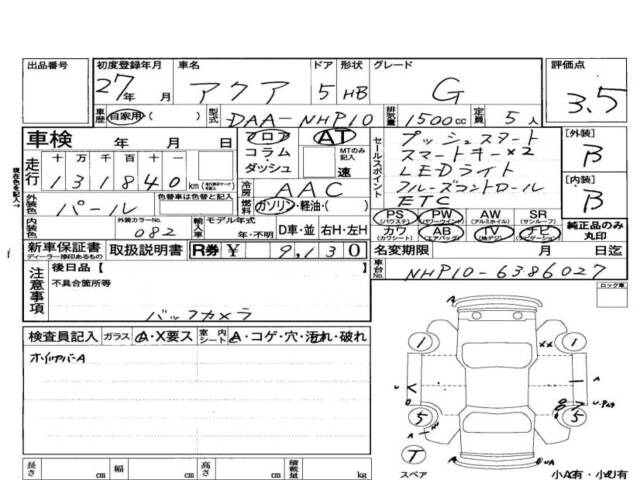 出品番号 初度登録年月 車名 ドア 形状 グレード 評価点
27年 月 アクア 5 HB G 3.5
車歴 自家用・( ) 型式 DAA-NHP10 排気量 1500cc 定員 5人
車検 年 月 日 フロア AT セールスポイント プッシュスタート [外装] B
コラム・ダッシュ MTのみ記入 速 スマートキー×2
走行 十 万 千 百 十 一 LEDライト
131840km クルーズコントロール [内装] B
冷房 AAC ETC
現在色を記入→ 外装色 パール 色替車は色替と記入 燃料 ガソリン・軽油・( )
PS(パワステ) PW(パワーウインド) AW(アルミホイル) SR(サンルーフ) 純正品のみ丸印
内装色 外装カラーNo. 082 輸入車 モデル年式 年・不明 D車・並 右H・左H
カワ(カワシート) AB(エアバッグ) TV(地デジ) ナビ(ナビゲーション)
新車保証書 ディーラー捺印あるもの 取扱説明書 R券 ¥ 9,130 名変期限 月 日迄
車台No. NHP10-6386027
注意事項 後日品【
不具合箇所等
バックカメラ
ロック車
検査員記入 ガラス A・X要ス 室内シート A・コゲ・穴・汚れ・破れ
A
1 1
×× A
U A
5 5
A
T
UA
スペア 小A有・小U有
長さ cm 幅 cm 高さ cm 積載量 kg